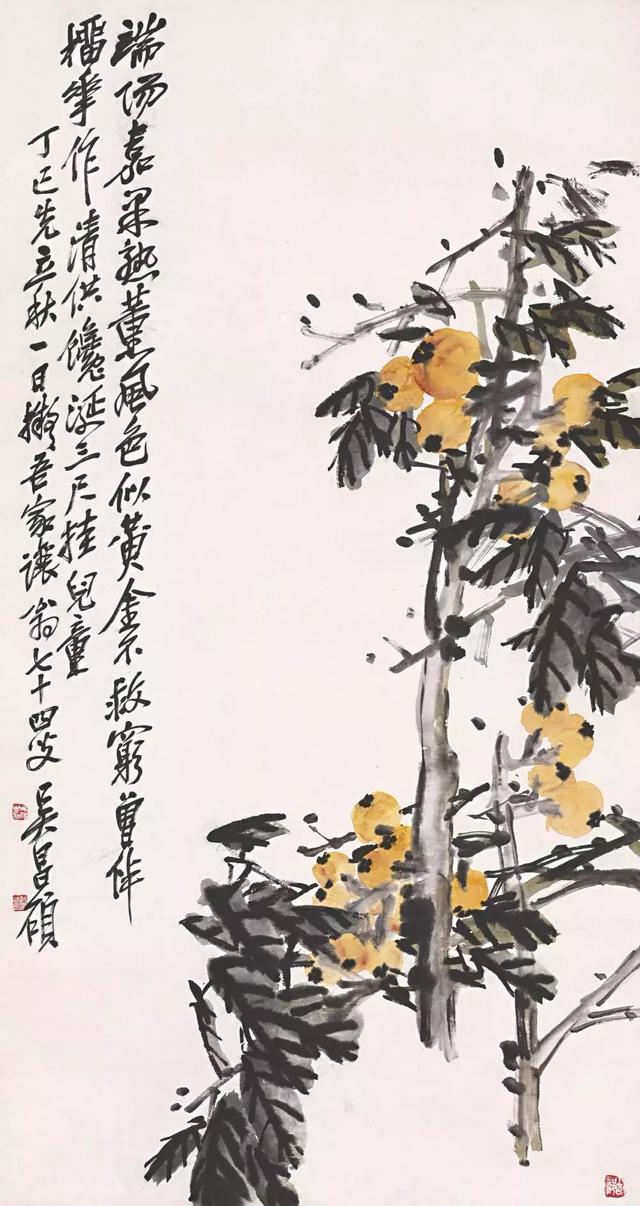 端阳嘉果熟薰風色似黄金不救窮曾伴
榴華作清供饞涎三尺挂兒童
丁巳先立秋一日撫吾家讓翁七十四叟
吴昌碩